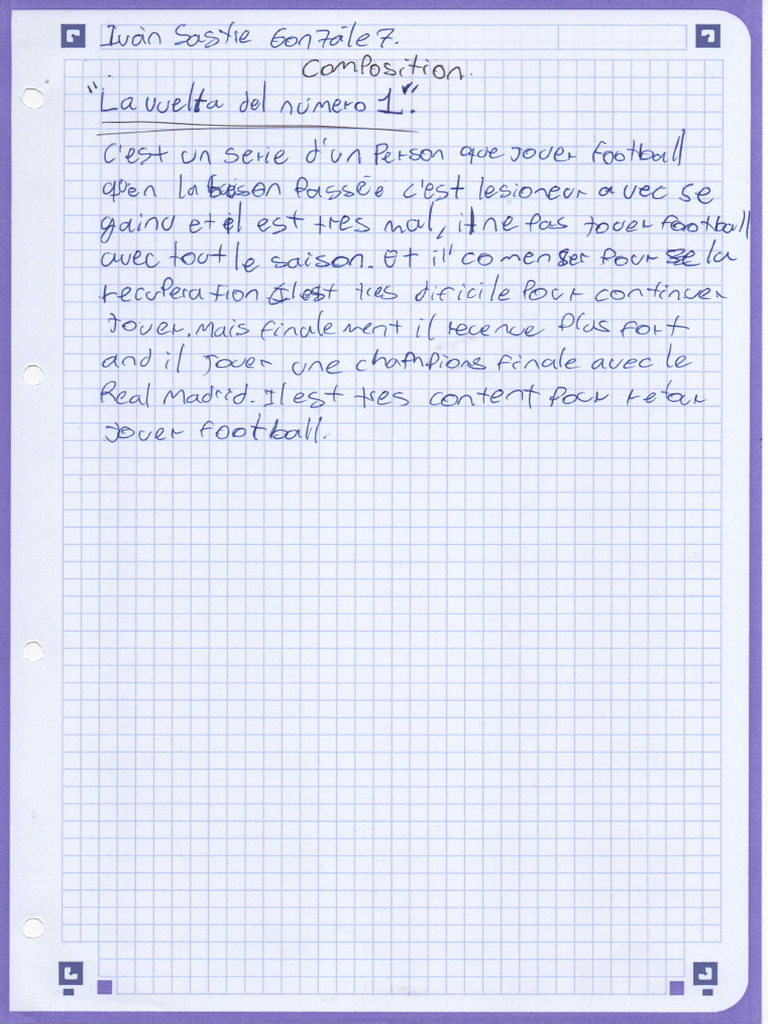 Iván Sastre González.
Composition.
"La vuelta del número 1".
C'est un serie d'un Person que jouer football
quen la saison passée c'est lesioneur avec se
gainu et il est tres mal, il ne pas jouer football
avec tout le saison. Et il comenser pour la
recuperation il est tres dificile pour continuer
jouer. Mais finalement il recence plus fort
and il jouer une champions finale avec le
Real Madrid. Il est tres content pour retour
jouer football.